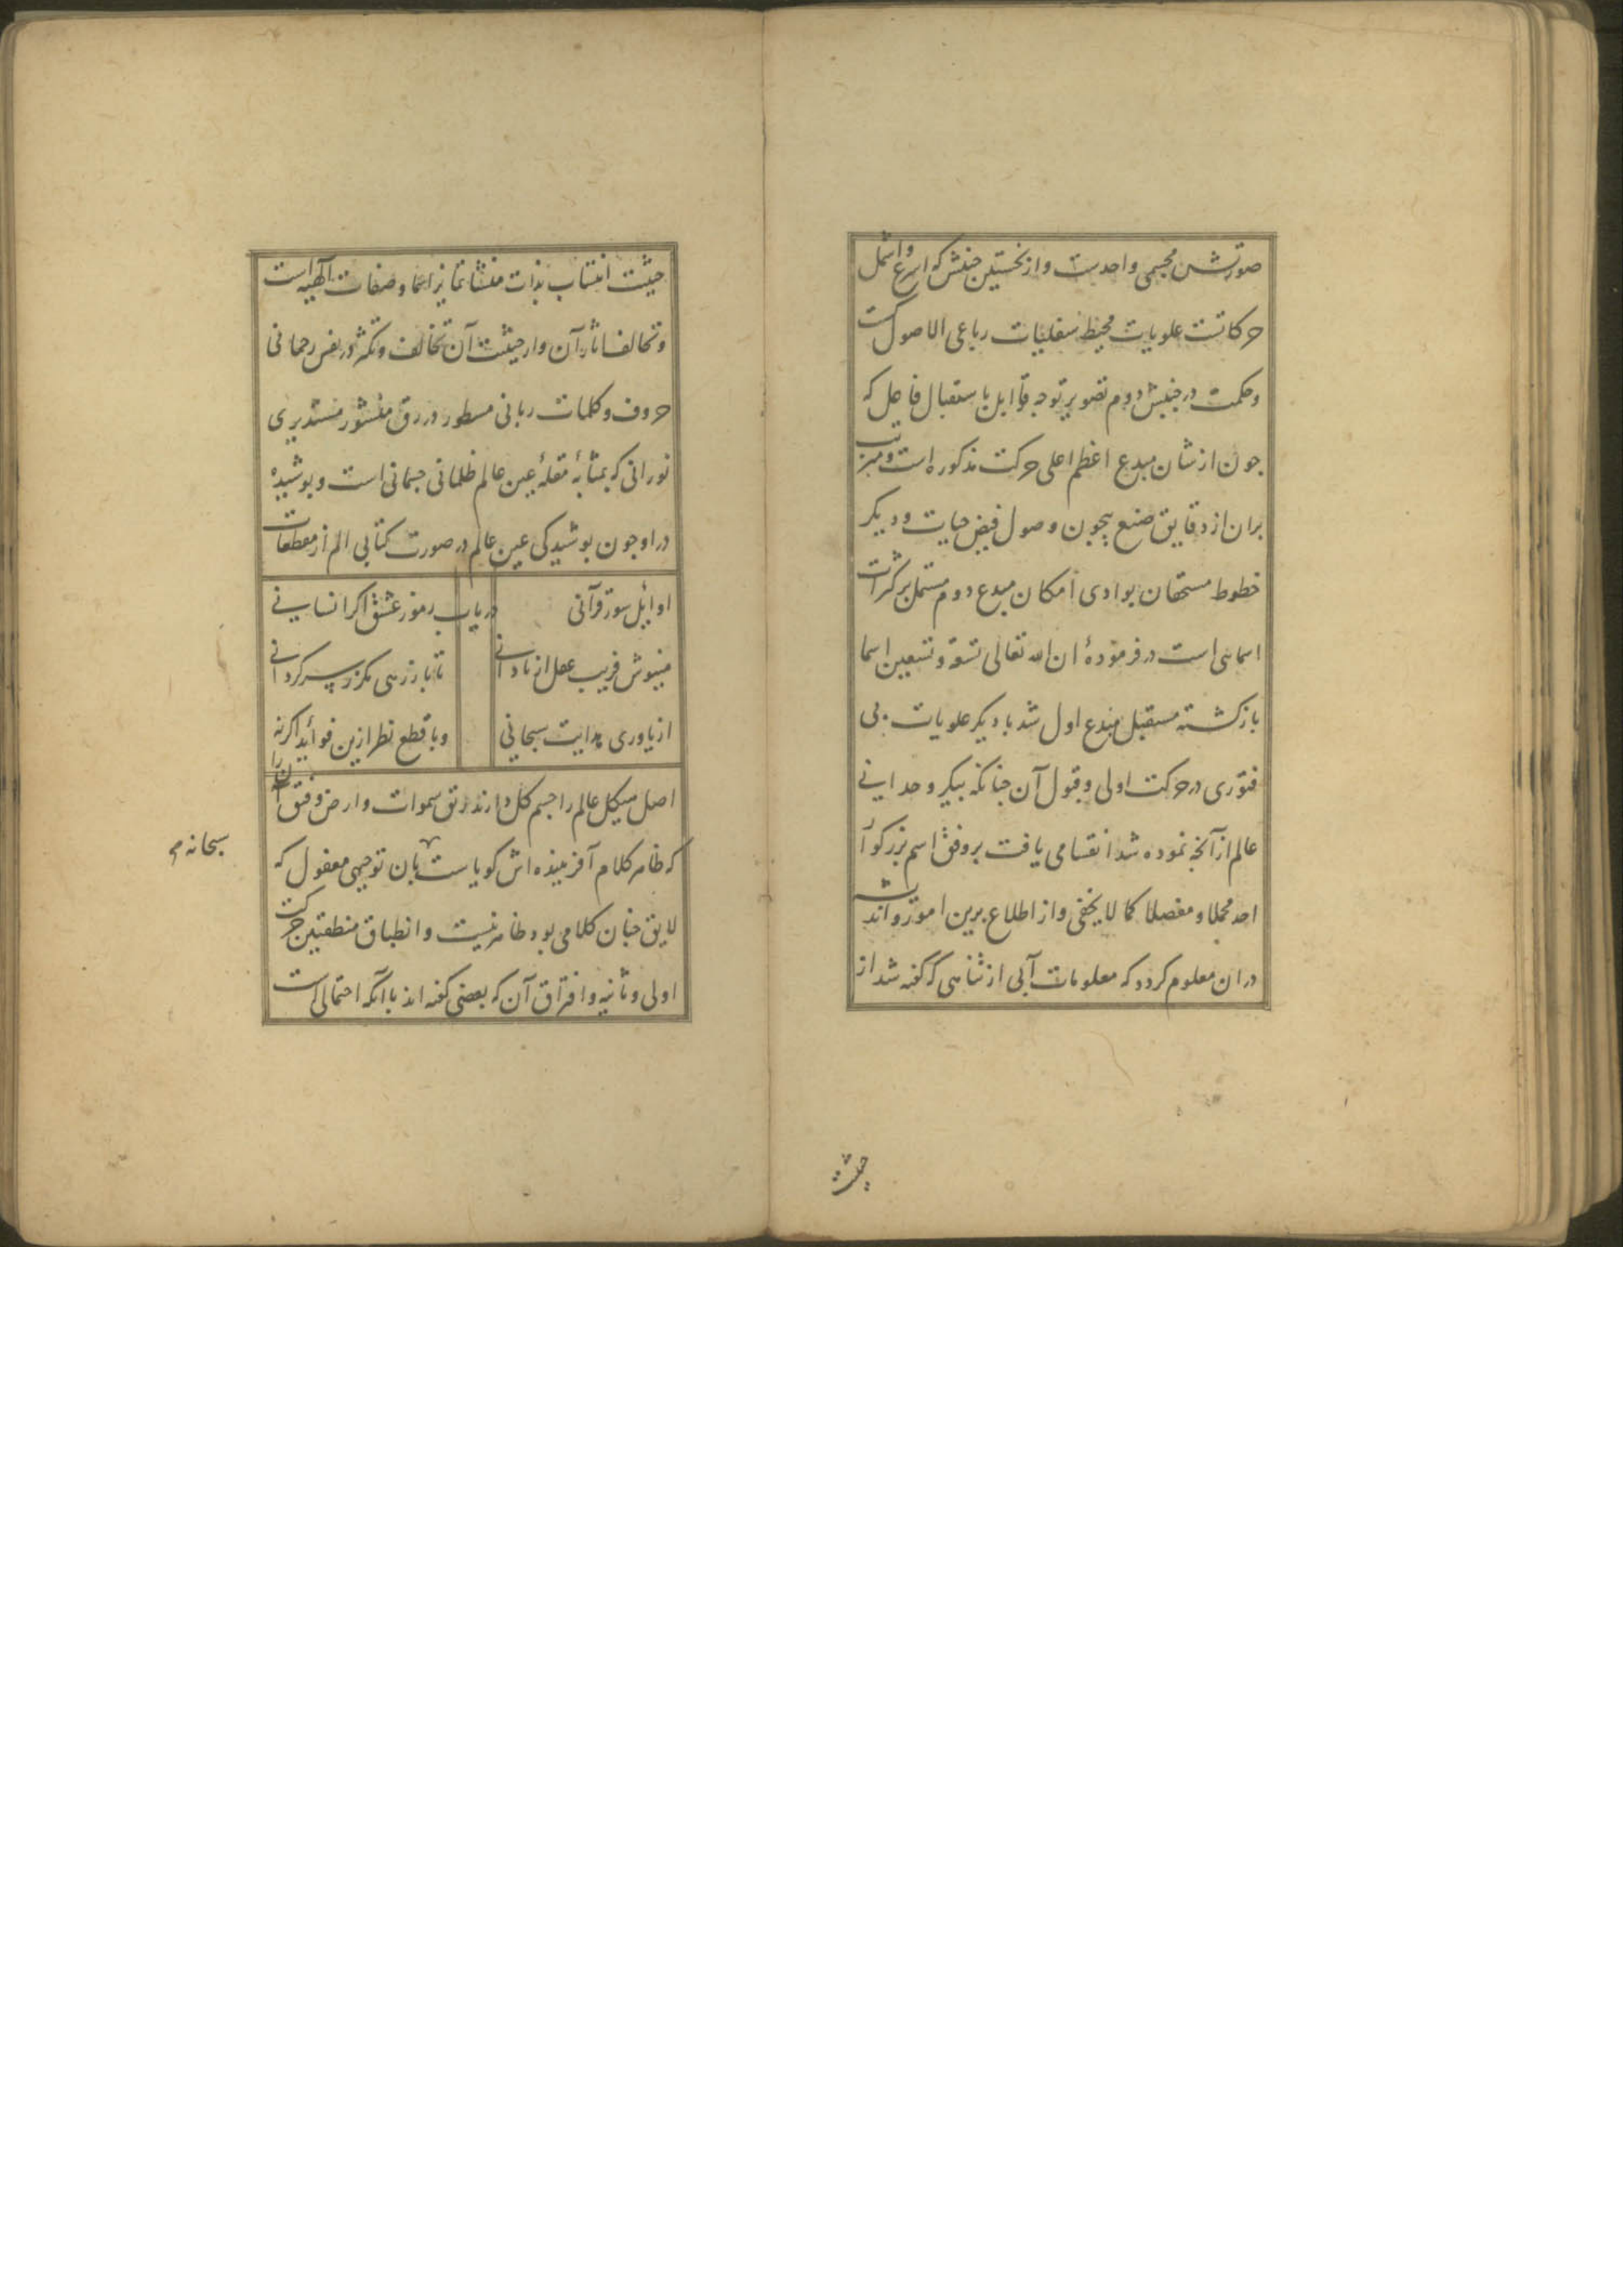 صورتش مجسمی واحدست و از نخستین جنبش که اسرع و اشمل
حرکاتست علویات محیط سفلیات رباعی الاصول کشت
و حکمت در جنبش دوم تصویر توجه قوابل باستقبال فاعل که
جون از شان مبدع اعظم اعلی حرکت مذکوره است و مترتب
بران از دقایق صنع بیچون وصول فیض حیات و دیکر
خطوط مستحقان بوادی امکان مبدع دوم مشتمل بر کثرات
اسمایی است در فرمودهٔ ان الله تعالی تسعة و تسعین اسما
بازکشته مستقبل مبدع اول شد با دیکر علویات بی
فتوری در حرکت اولی و قبول آن جنانکه بیکر وحدانی
عالم از آنجه نموده شد انقسامی یافت بر وفق اسم بزرکوار
احد مجملا و مفصلا کما لا یخفی و از اطلاع برین امور و اندیشه
در ان معلوم کردد که معلومات آبی از تناهی که کفته شد از
حیثیت
حیثیت انتساب بذات منشا تمایز اسما و صفات آلهیه است
و تخالف اثار آن و از حیثیت آن تخالف و تکثر در نفس رحمانی
حروف و کلمات ربانی مسطور در رق منشور مستدیری
نورانی که بمثابهٔ مقلهٔ عین عالم ظلمانی جسمانی است و بوشیده
در او جون بوشیدکی عین عالم در صورت کتابی الم از مقطعات
اوایل سور قرآنی در یاب رموز عشق اکر انسانی
منیوش فریب عقل از نادانی تا باز رهی مکر ز سرکردانی
از یاوری هدایت سبحانی و با قطع نظر ازین فوائد اکر نه
اصل هیکل عالم را جسم کل دارند رتق سموات و ارض و فتق آن را
که ظاهر کلام آفریننده اش کویاست بان توجیهی معقول که
سبحانه
لایق جنان کلامی بود ظاهر نیست و انطباق منطقتین حرکت
اولی و ثانیه و افتراق آن که بعضی کفته اند با آنکه احتمالی است